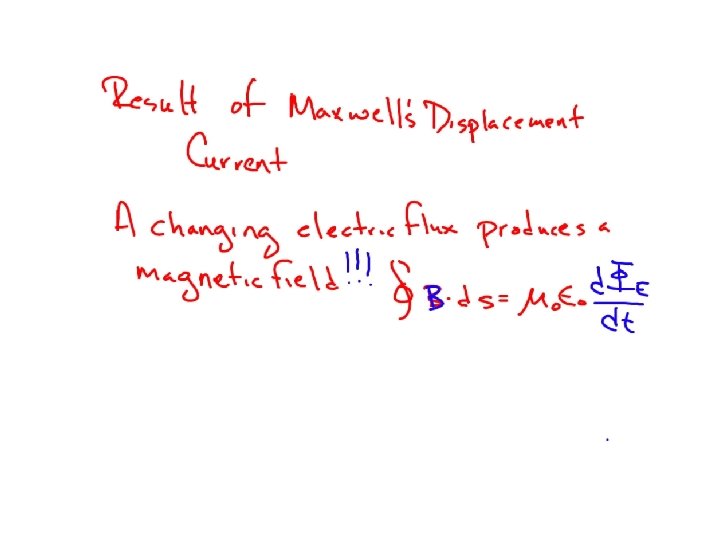 Result of Maxwell's Displacement
Current
A changing electric flux produces a
magnetic field!!! ∮ B · ds = μ₀ε₀ dΦ_E/dt